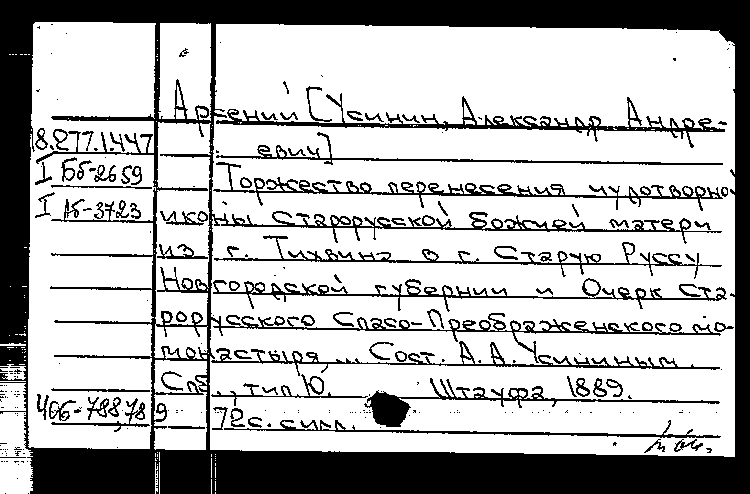 Арсений [Усинин, Александр Андре-
18.277.1.447
евич]
I Бб-2659
Торжество перенесения чудотворной
I Аб-3723
иконы Старорусской Божией матери
из г. Тихвина в г. Старую Руссу
Новгородской губернии и Очерк Ста-
рорусского Спасо-Преображенского мо-
монастыря... Сост. А. А. Усининым.
Спб., тип. Ю. Штауфа, 1889.
406-788,789
72 с. с илл.